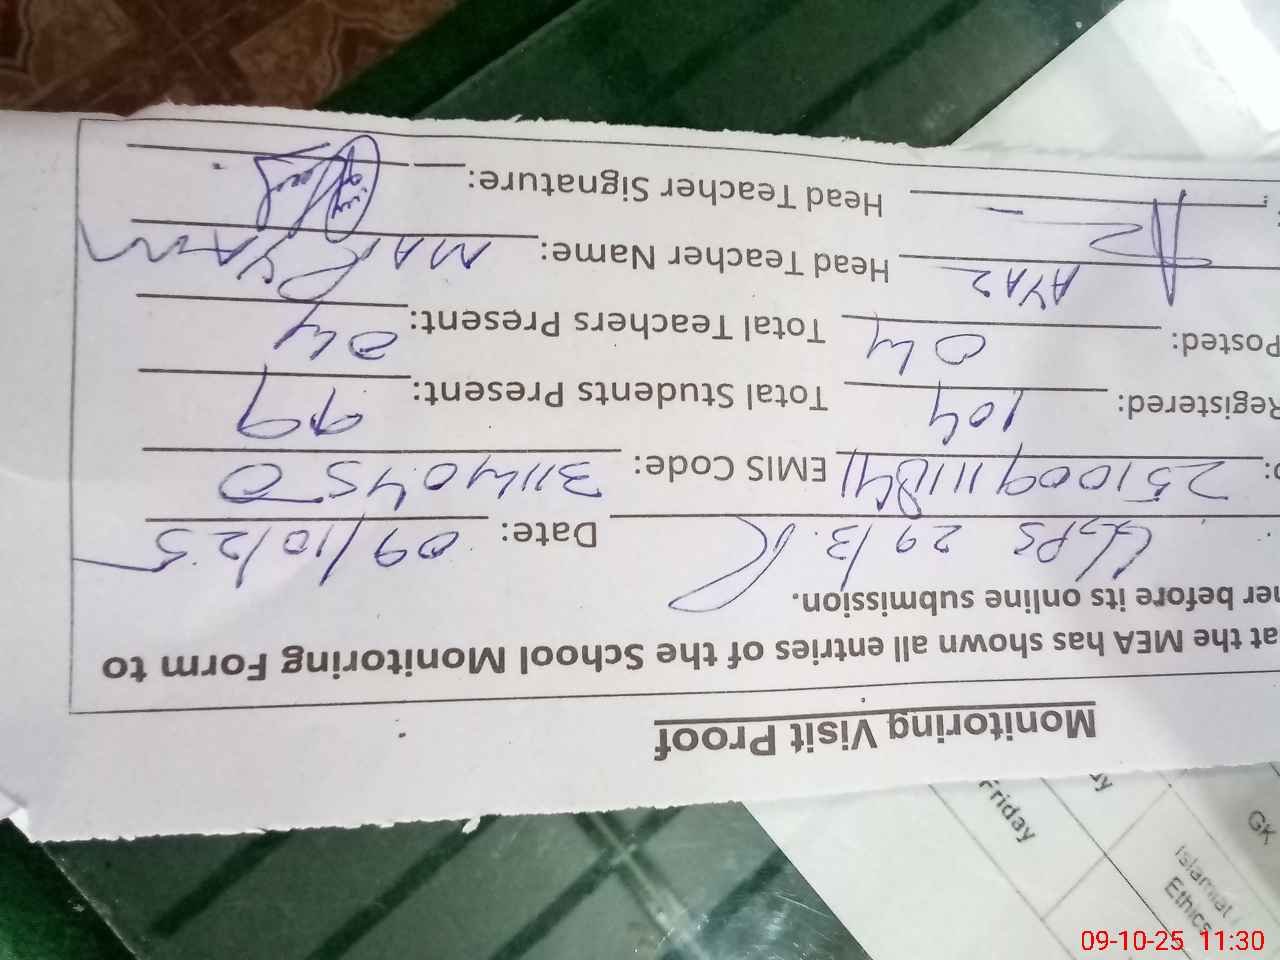 Monitoring Visit Proof
at the MEA has shown all entries of the School Monitoring Form to
her before its online submission.
GGPS 29/3.R Date: 09/10/25
2510091111841 EMIS Code: 31140450
Registered: 104 Total Students Present: 99
Posted: 04 Total Teachers Present: 04
AYAZ Head Teacher Name: MARYAM
Head Teacher Signature:
Friday
GK
Islamiat
Ethics
09-10-25 11:30